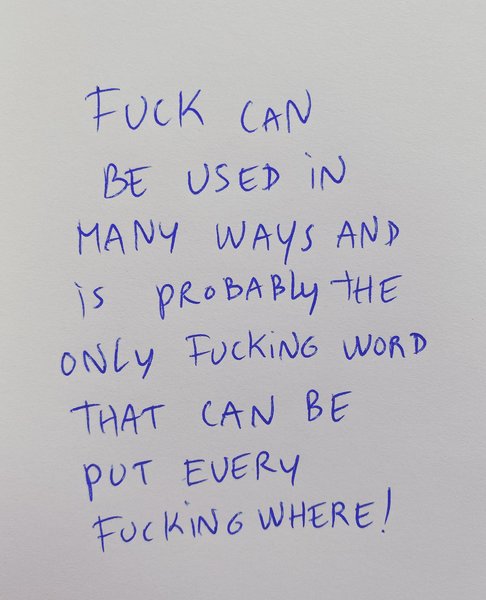 FUCK CAN
BE USED iN
MANY WAYS AND
is PROBABLY THE
ONLY FUCKiNG WORD
THAT CAN BE
PUT EVERY
FUCKiNG WHERE!